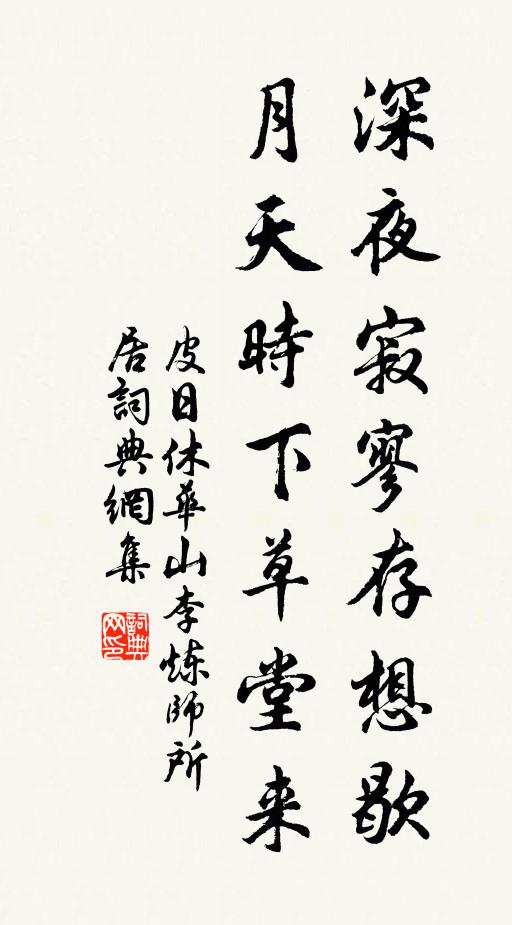 深夜寂寥存想歇
月天時下草堂来
皮日休華山李炼師所
居詞典網集
詞典网印